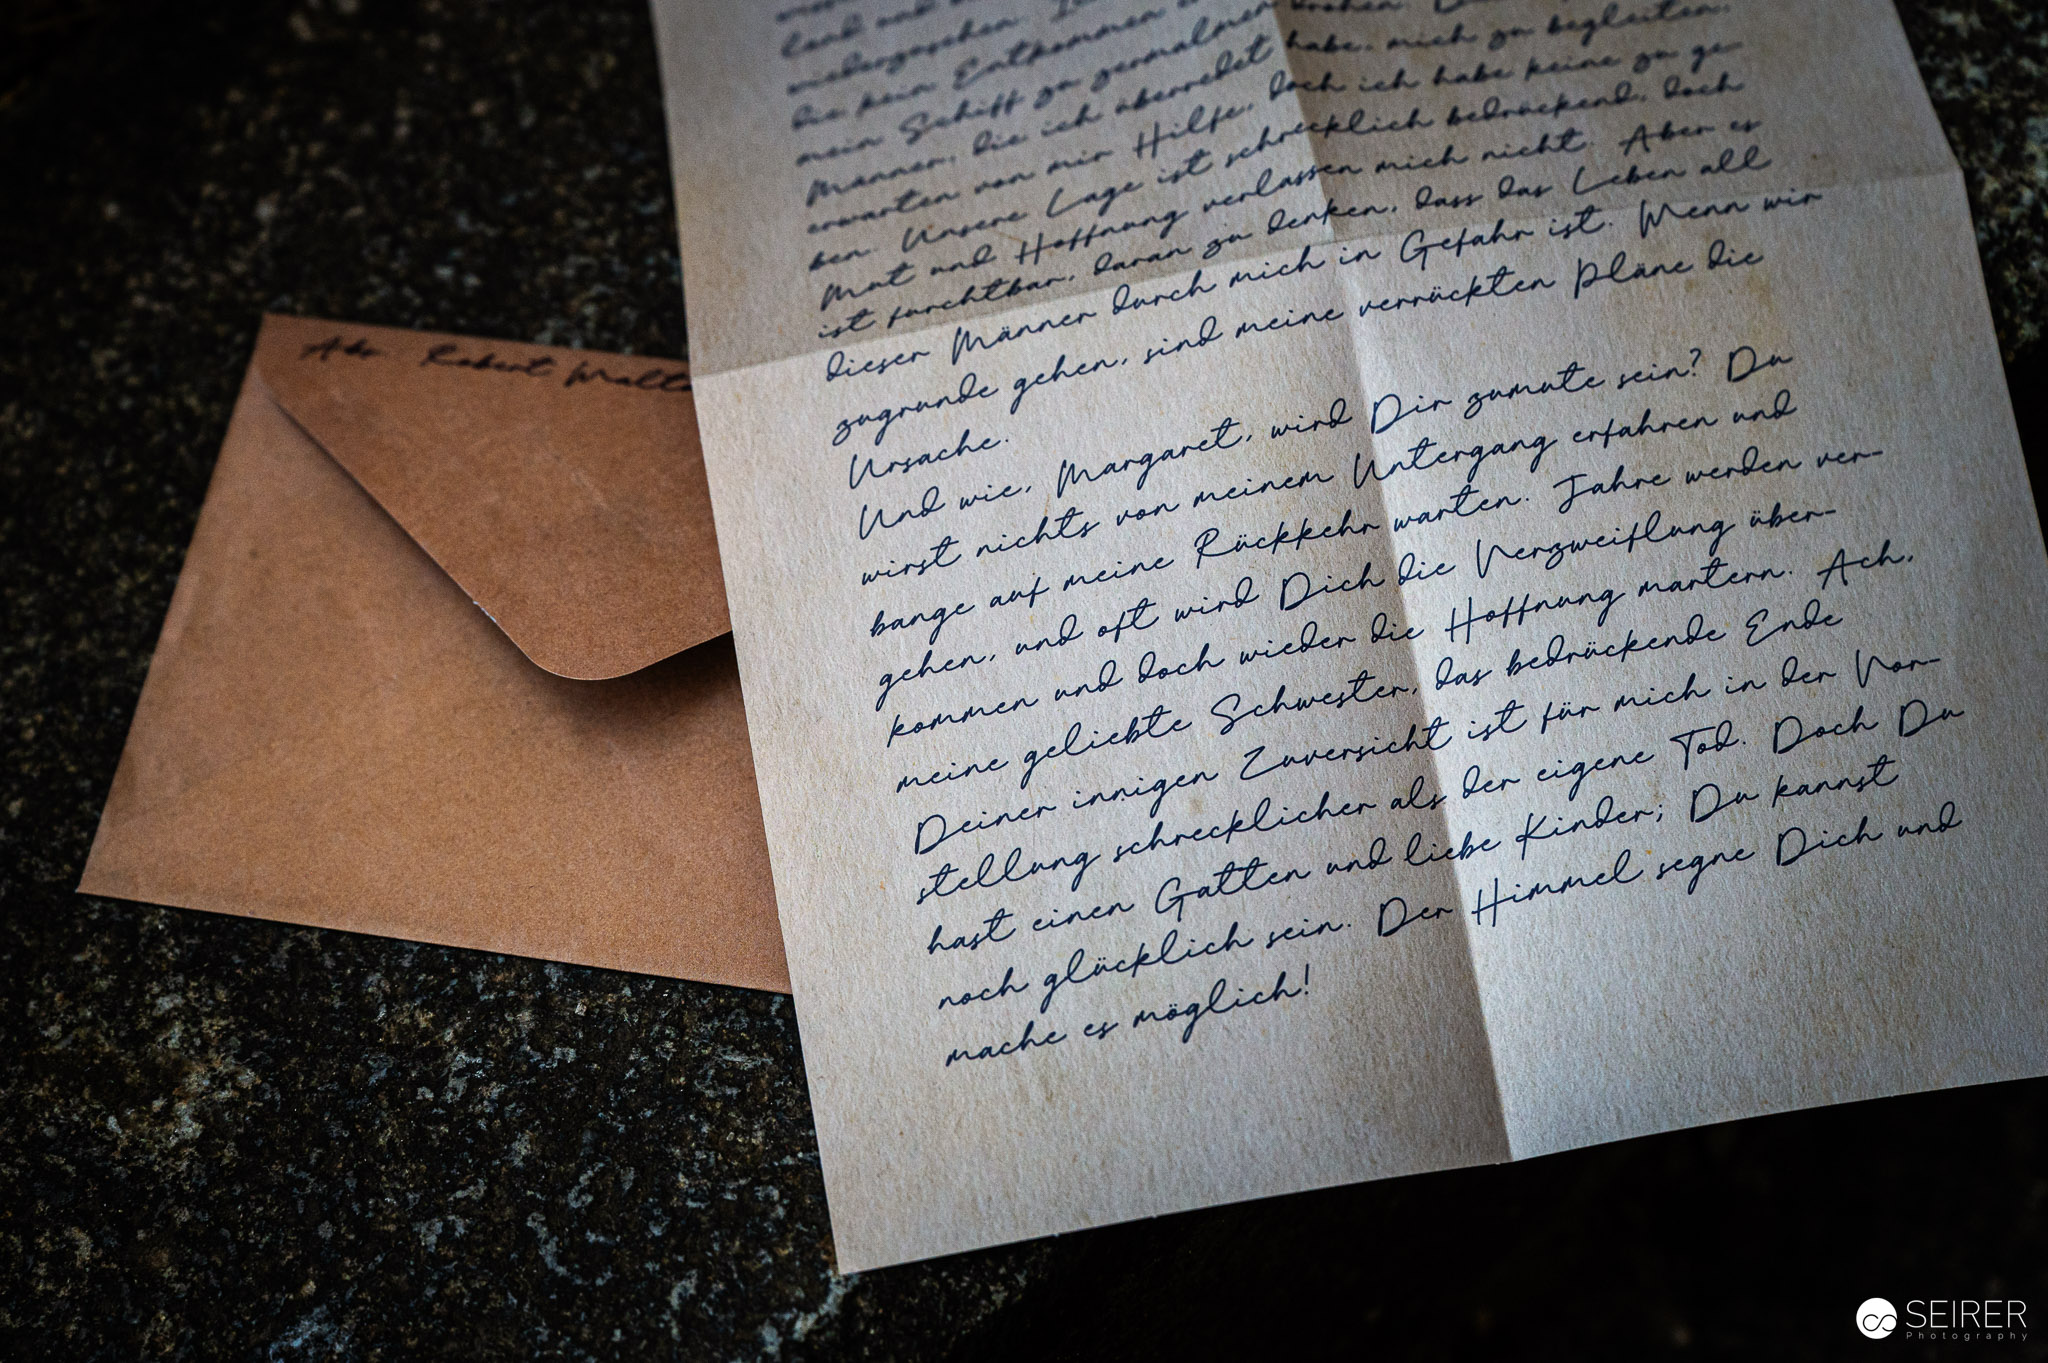 Abs. Robert Walto
land und
wiederzusehen.
die kein Entkommen drohen.
mein Schiff zu zermalmen
Männer, die ich überredet habe, mich zu begleiten,
erwarten von mir Hilfe, doch ich habe keine zu ge-
ben. Unsere Lage ist schrecklich bedrückend, doch
Mut und Hoffnung verlassen mich nicht. Aber es
ist furchtbar, daran zu denken, dass das Leben all
dieser Männer durch mich in Gefahr ist. Wenn wir
zugrunde gehen, sind meine verrückten Pläne die
Ursache.
Und wie, Margaret, wird Dir zumute sein? Du
wirst nichts von meinem Untergang erfahren und
bange auf meine Rückkehr warten. Jahre werden ver-
gehen, und oft wird Dich die Verzweiflung über-
kommen und doch wieder die Hoffnung martern. Ach,
meine geliebte Schwester, das bedrückende Ende
Deiner innigen Zuversicht ist für mich in der Vor-
stellung schrecklicher als der eigene Tod. Doch Du
hast einen Gatten und liebe Kinder; Du kannst
noch glücklich sein. Der Himmel segne Dich und
mache es möglich!
SEIRER
Photography